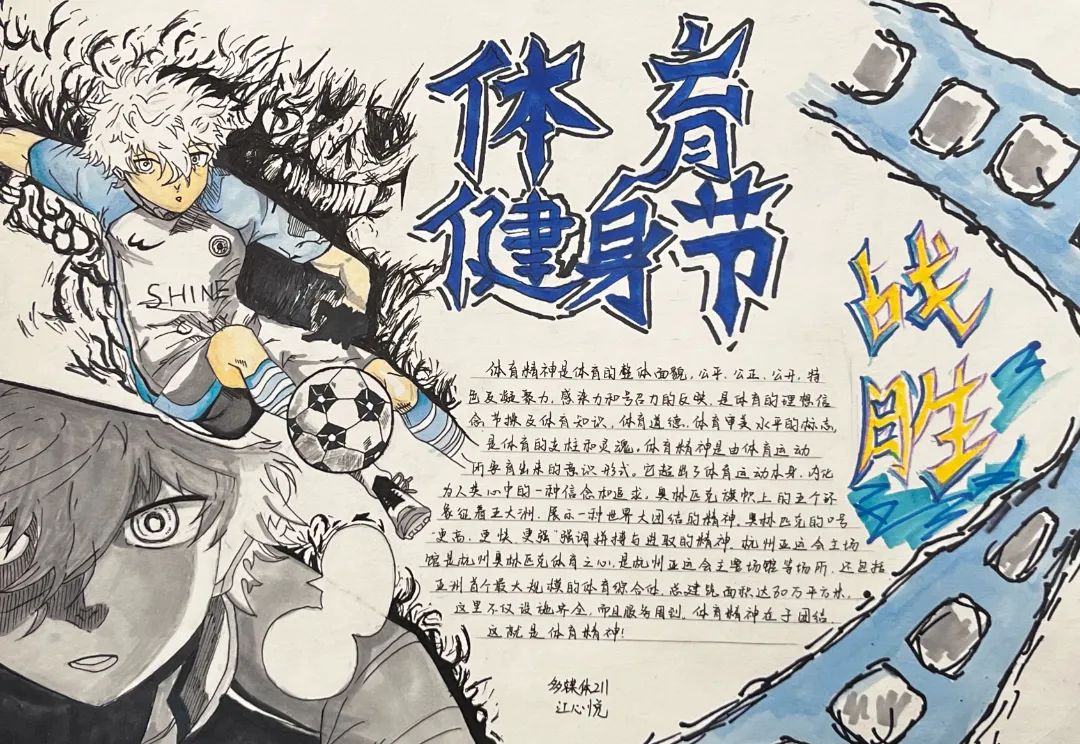 体育
健身节
战
胜
SHINE
体育精神是体育的整体面貌,公平、公正、公开、特
色及凝聚力,感染力和号召力的反映,是体育的理想信
念、节操及体育知识,体育道德,体育审美水平的标志,
是体育的支柱和灵魂。体育精神是由体育运动
所孕育出来的意识形式。它超出了体育运动本身,内化
为人类心中的一种信念和追求。奥林匹克旗帜上的五个环
象征着五大洲,展示一种世界大团结的精神。奥林匹克的口号
"更高、更快、更强"强调拼搏与进取的精神。杭州亚运会主场
馆是杭州奥林匹克体育之心,是杭州亚运会主要场馆等场所,还包括
亚洲首个最大规模的体育综合体,总建筑面积达80万平方米,
这里不仅设施齐全,而且服务周到。体育精神在于团结,
这就是体育精神!
多媒体211
江心悦